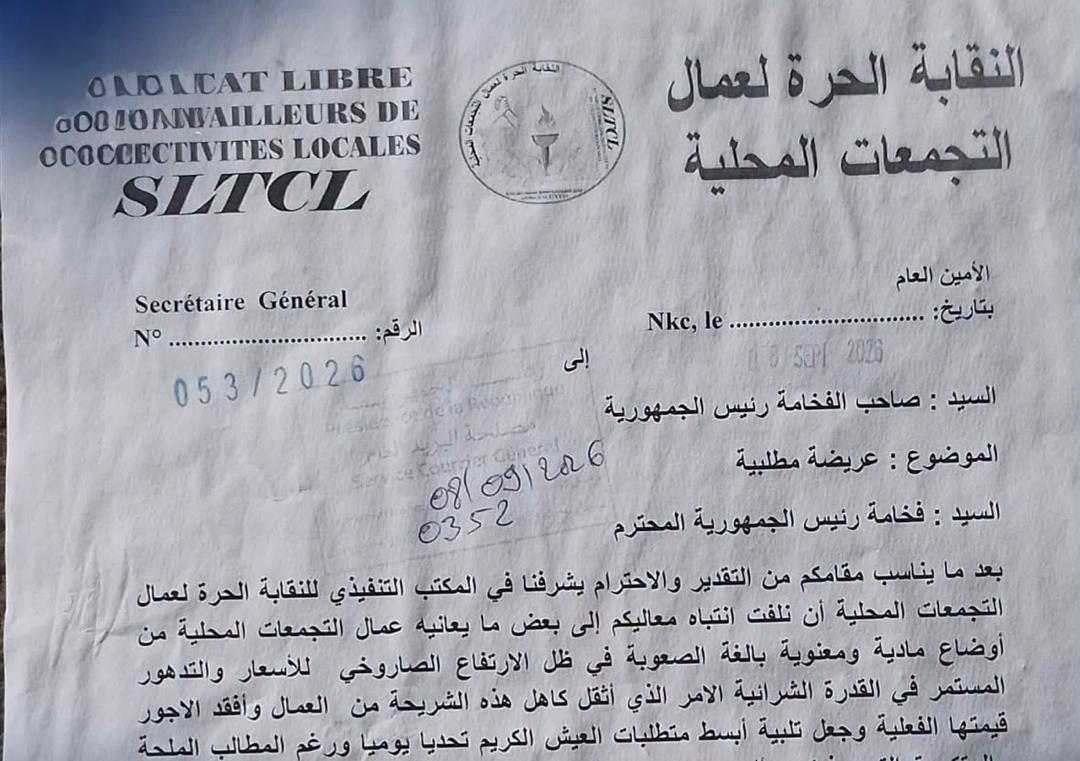 CAT LIBRE
AILLEURS DE
ECTIVITES LOCALES
SLTCL
النقابة الحرة لعمال التجمعات المحلية
SLTCL
النقابة الحرة لعمال
التجمعات المحلية
Secrétaire Général
الأمين العام
N° .................................. الرقم:
Nkc, le .................................. بتاريخ:
053/2026
8 SEPT 2026
إلى
Présidence de la République
مصلحة البريد العام
Service Courrier Général
08/09/2026
0352
السيد : صاحب الفخامة رئيس الجمهورية
الموضوع : عريضة مطلبية
السيد : فخامة رئيس الجمهورية المحترم
بعد ما يناسب مقامكم من التقدير والاحترام يشرفنا في المكتب التنفيذي للنقابة الحرة لعمال
التجمعات المحلية أن نلفت انتباه معاليكم إلى بعض ما يعانيه عمال التجمعات المحلية من
أوضاع مادية ومعنوية بالغة الصعوبة في ظل الارتفاع الصاروخي للأسعار والتدهور
المستمر في القدرة الشرائية الامر الذي أثقل كاهل هذه الشريحة من العمال وأفقد الاجور
قيمتها الفعلية وجعل تلبية أبسط متطلبات العيش الكريم تحديا يوميا ورغم المطالب الملحة